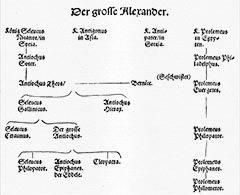 Der grosse Alexander.
König Seleucus
Nicanor/in
Syria.
K. Antigonus
in Asia.
K. Antipater/in
Grecia.
K. Ptolemeus
in Egypten.
Antiochus
Soter.
Ptolemeus Philadelphus.
Antiochus Theos
Bernice.
(Geschwister)
Ptolemeus
Euergetes.
Seleucus
Gallinicus.
Antiochus
Hierax.
Ptolemeus
Philopator.
Seleucus
Ceraunus.
Der grosse
Antiochus.
Ptolemeus
Epiphanes.
Seleucus
Philopator.
Antiochus
Epiphanes
der Edele.
Cleopatra.
Ptolemeus
Philometor.